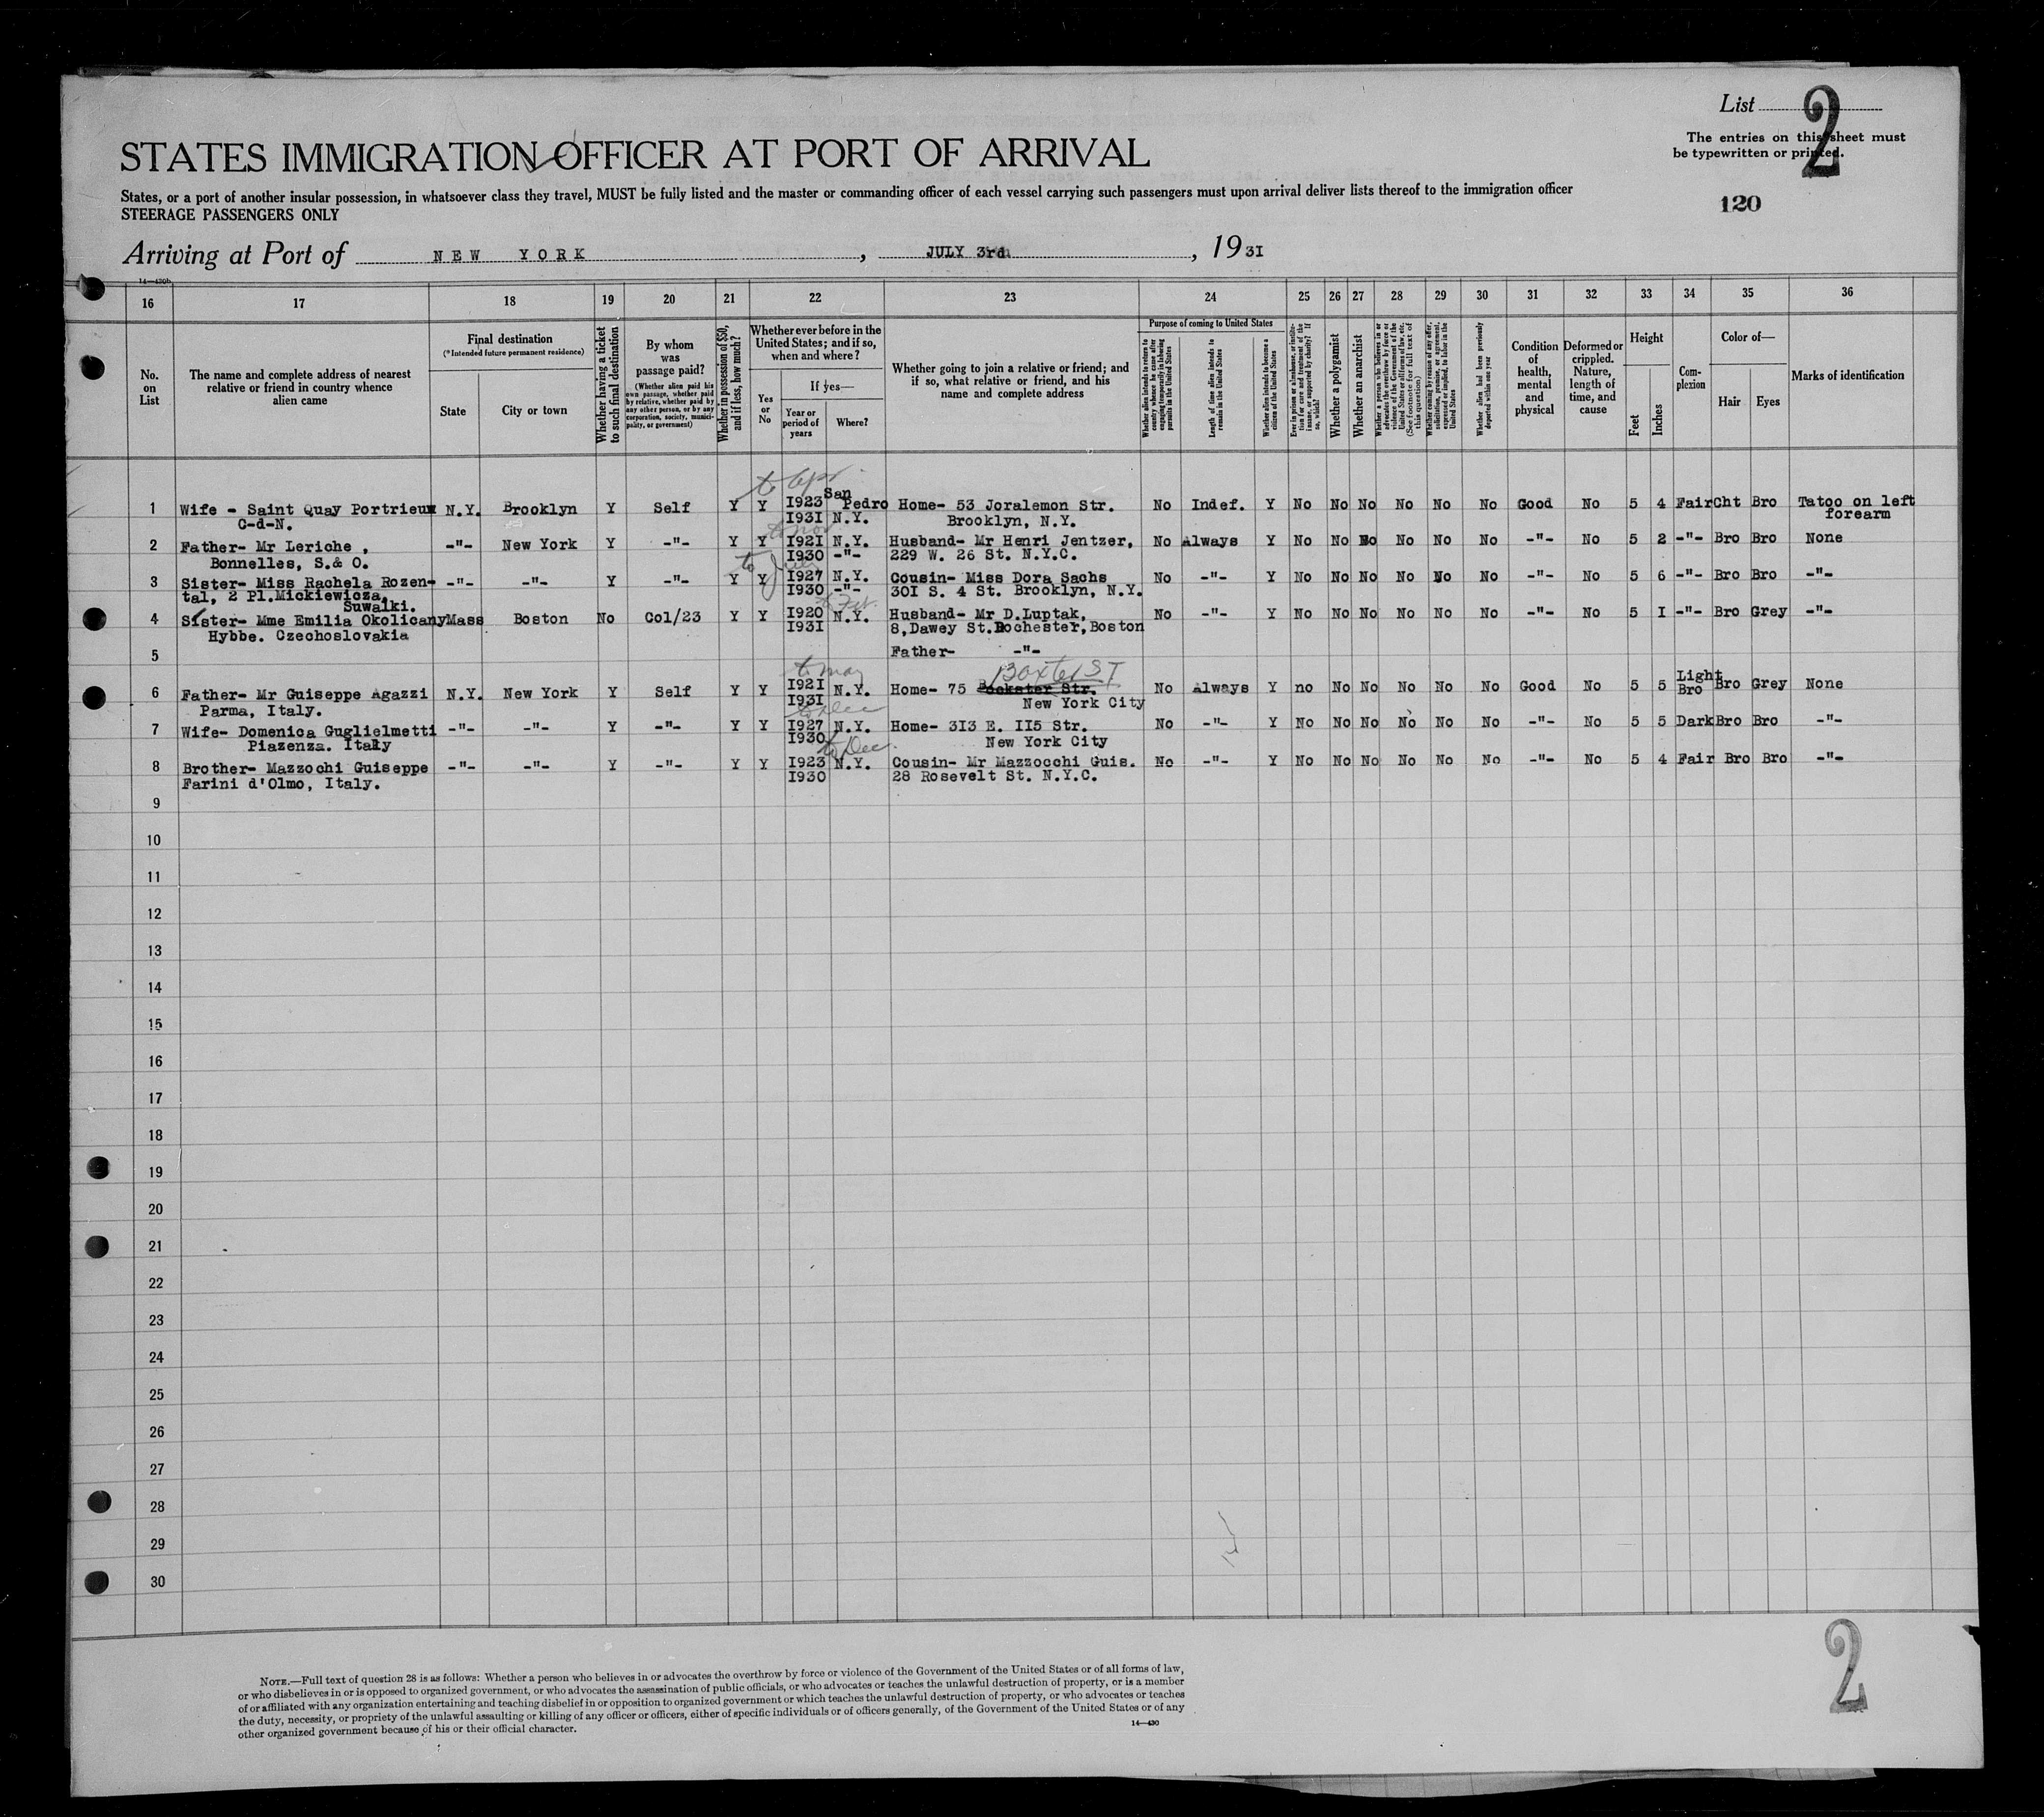 List 2
The entries on this sheet must
be typewritten or printed.
STATES IMMIGRATION OFFICER AT PORT OF ARRIVAL
States, or a port of another insular possession, in whatsoever class they travel, MUST be fully listed and the master or commanding officer of each vessel carrying such passengers must upon arrival deliver lists thereof to the immigration officer
STEERAGE PASSENGERS ONLY
120
Arriving at Port of NEW YORK, JULY 3rd, 1931
14—430b
16 17 18 19 20 21 22 23 24 25 26 27 28 29 30 31 32 33 34 35 36
No. on List
The name and complete address of nearest relative or friend in country whence alien came
Final destination
(*Intended future permanent residence)
State
City or town
Whether having a ticket to such final destination
By whom was passage paid?
(Whether alien paid his own passage, whether paid by relative, whether paid by any other person, or by any corporation, society, municipality, or government)
Whether in possession of $50, and if less, how much?
Whether ever before in the United States; and if so, when and where?
Yes or No
If yes—
Year or period of years
Where?
Whether going to join a relative or friend; and if so, what relative or friend, and his name and complete address
Purpose of coming to United States
Whether alien intends to return to country whence he came after engaging temporarily in laboring pursuits in the United States
Length of time alien intends to remain in the United States
Whether alien intends to become a citizen of the United States
Ever in prison or almshouse, or institution for care and treatment of the insane, or supported by charity? If so, which?
Whether a polygamist
Whether an anarchist
Whether a person who believes in or advocates the overthrow by force or violence of the Government of the United States or all forms of law, etc. (See footnote for full text of this question)
Whether coming by reason of any offer, solicitation, promise, or agreement, expressed or implied, to labor in the United States
Whether alien had been previously deported within one year
Condition of health, mental and physical
Deformed or crippled. Nature, length of time, and cause
Height
Feet
Inches
Complexion
Color of—
Hair
Eyes
Marks of identification
to Apr.
1 Wife - Saint Quay Portrieux N.Y. Brooklyn Y Self Y Y I923 San Pedro Home- 53 Joralemon Str. No Indef. Y No No No No No No Good No 5 4 Fair Cht Bro Tatoo on left
C-d-N. I93I N.Y. Brooklyn, N.Y. forearm
to Nov
2 Father- Mr Leriche , -"- New York Y -"- Y Y I92I N.Y. Husband- Mr Henri Jentzer, No Always Y No No No No No No -"- No 5 2 -"- Bro Bro None
Bonnelles, S.& O. I930 -"- 229 W. 26 St. N.Y.C.
to July
3 Sister- Miss Rachela Rozen- -"- -"- Y -"- Y Y I927 N.Y. Cousin- Miss Dora Sachs No -"- Y No No No No No No -"- No 5 6 -"- Bro Bro -"-
tal, 2 Pl.Mickiewicza, I930 -"- 30I S. 4 St. Brooklyn, N.Y.
Suwalki.
to Feb.
4 Sister- Mme Emilia Okolicany Mass Boston No Col/23 Y Y I920 N.Y. Husband- Mr D.Luptak, No -"- Y No No No No No No -"- No 5 I -"- Bro Grey -"-
Hybbe. Czechoslovakia I93I 8,Dawey St.Dochester,Boston
5 Father- -"-
to may Baxter ST
6 Father- Mr Guiseppe Agazzi N.Y. New York Y Self Y Y I92I N.Y. Home- 75 No Always Y no No No No No No Good No 5 5 Light Bro Bro Grey None
Parma, Italy. I93I New York City
to Dec
7 Wife- Domenica Guglielmetti -"- -"- Y -"- Y Y I927 N.Y. Home- 3I3 E. II5 Str. No -"- Y No No No No No No -"- No 5 5 Dark Bro Bro -"-
Piazenza. Italy I930 New York City
to Dec.
8 Brother- Mazzochi Guiseppe -"- -"- Y -"- Y Y I923 N.Y. Cousin- Mr Mazzocchi Guis. No -"- Y No No No No No No -"- No 5 4 Fair Bro Bro -"-
Farini d'Olmo, Italy. I930 28 Rosevelt St. N.Y.C.
9
10
11
12
13
14
15
16
17
18
19
20
21
22
23
24
25
26
27
28
29
30
NOTE.—Full text of question 28 is as follows: Whether a person who believes in or advocates the overthrow by force or violence of the Government of the United States or of all forms of law,
or who disbelieves in or is opposed to organized government, or who advocates the assassination of public officials, or who advocates or teaches the unlawful destruction of property, or is a member
of or affiliated with any organization entertaining and teaching disbelief in or opposition to organized government or which teaches the unlawful destruction of property, or who advocates or teaches
the duty, necessity, or propriety of the unlawful assaulting or killing of any officer or officers, either of specific individuals or of officers generally, of the Government of the United States or of any
other organized government because of his or their official character.
14—430
2